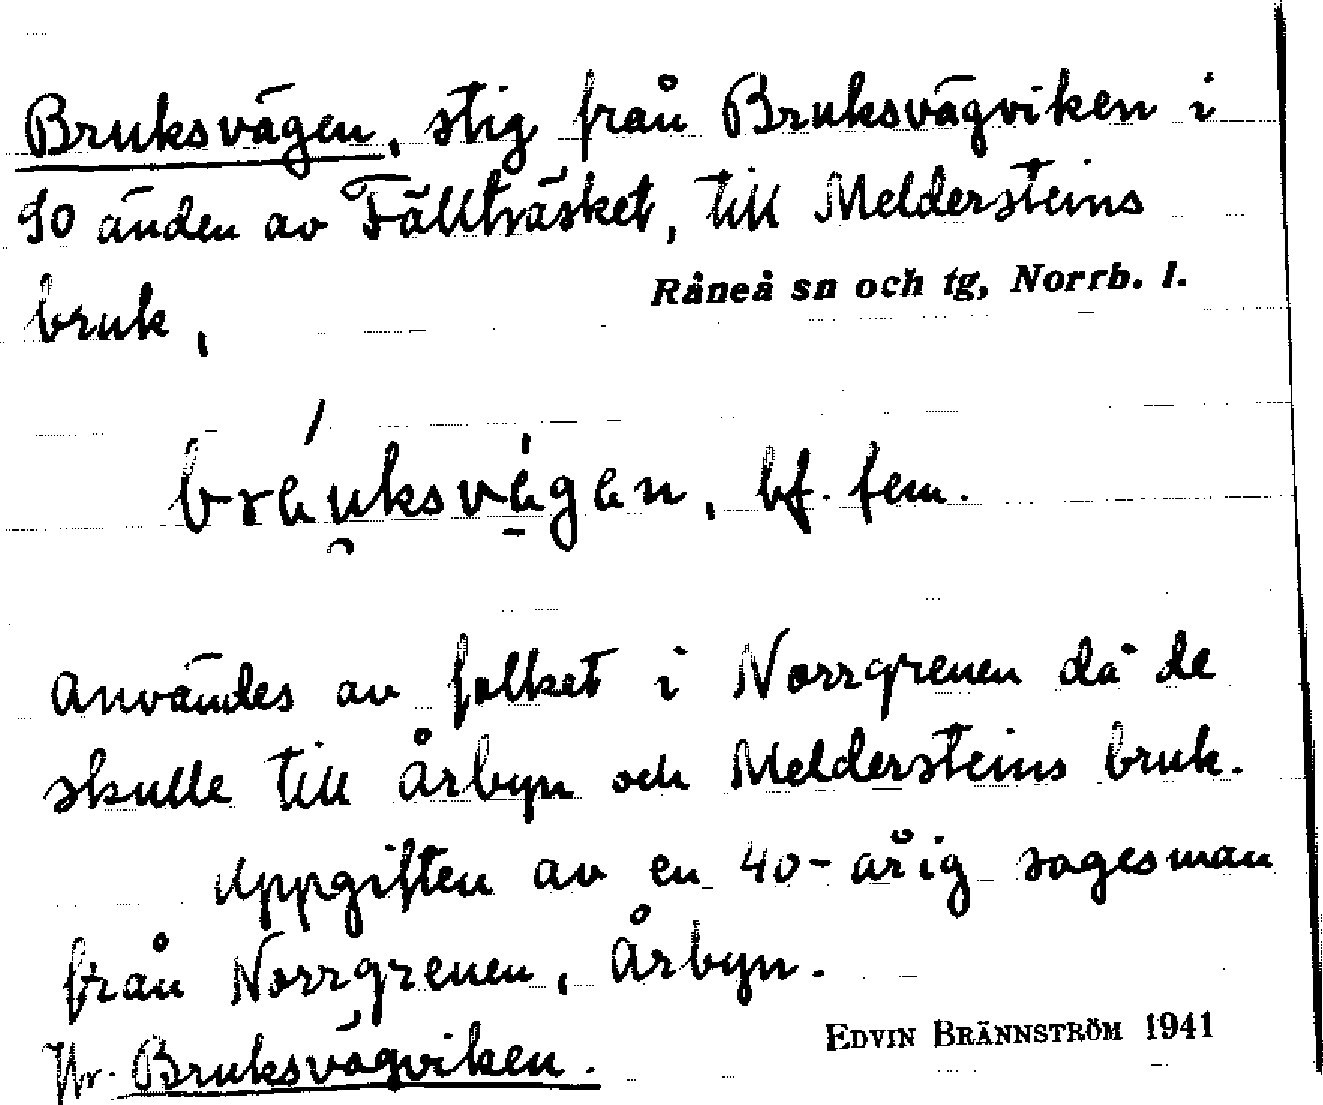 Bruksvägen, stig från Bruksvägviken i
SO änden av Fällträsket, till Meldersteins
bruk,
Råneå sn och tg, Norrb. l.
bf. fem.
Användes av folket i Norrgrenen då de
skulle till Årbyn och Meldersteins bruk.
Uppgiften av en 40-årig sagesman
från Norrgrenen, Årbyn.
EDVIN BRÄNNSTRÖM 1941
Jfr. Bruksvägviken.